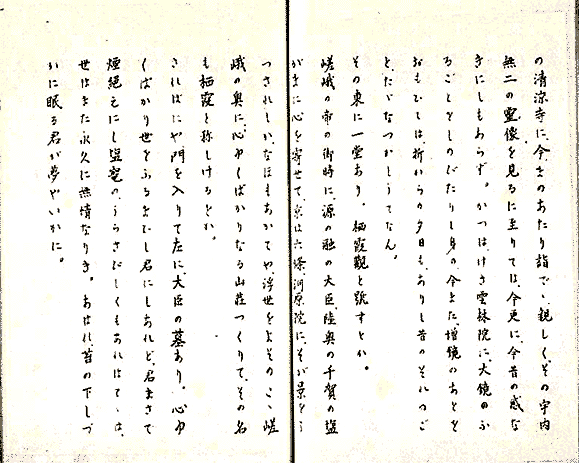 の清涼寺に、今、まのあたり詣でゝ、親しくその宇内
無二の霊像を見るに至りては、今更に、今昔の感な
きにしもあらず。かつは、けさ雲林院に、大鏡のふ
ることをしのびたりし身の、今また、増鏡のあとを
おもひては、折からの夕日も、ありし昔のそれのご
とたゞなつかしうてなん。
その東に一堂あり。栖霞観と号すとか。
嵯峨の帝の御時に、源の融の大臣、陸奥の千賀の塩
がまに心を寄せて、京は六条、河原院に、その景をう
つされしが、なほもあかでや、浮世をよそのこゝ嵯
峨の奥に、心ゆくばかりなる山荘つくりて、その名
も栖霞と称しけるとか。
さればにや、門を入りて左に、大臣の墓あり。心ゆ
くばかり世をふるまひし君にしあれど、君まさで
煙絶えにし塩竈の、うらさびしくもあれはてゝは、
世はまた永久に無情なりき。あはれ苔の下しづ
かに眠る君が夢やいかに。